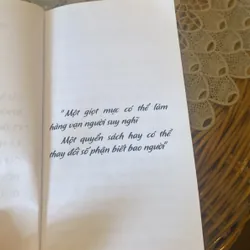 " Một giọt mực có thể làm
hàng vạn người suy nghĩ
Một quyển sách hay có thể
thay đổi số phận biết bao người"